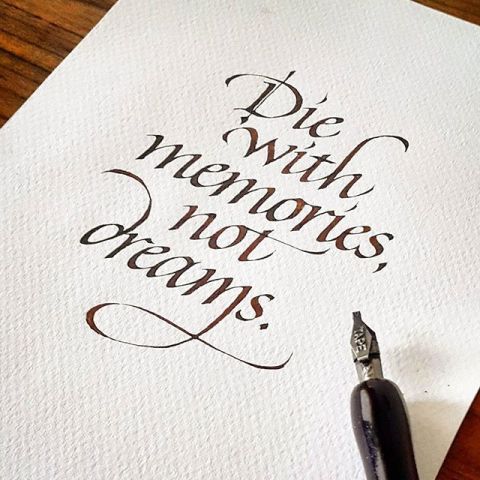 Die
with
memories,
not
dreams.